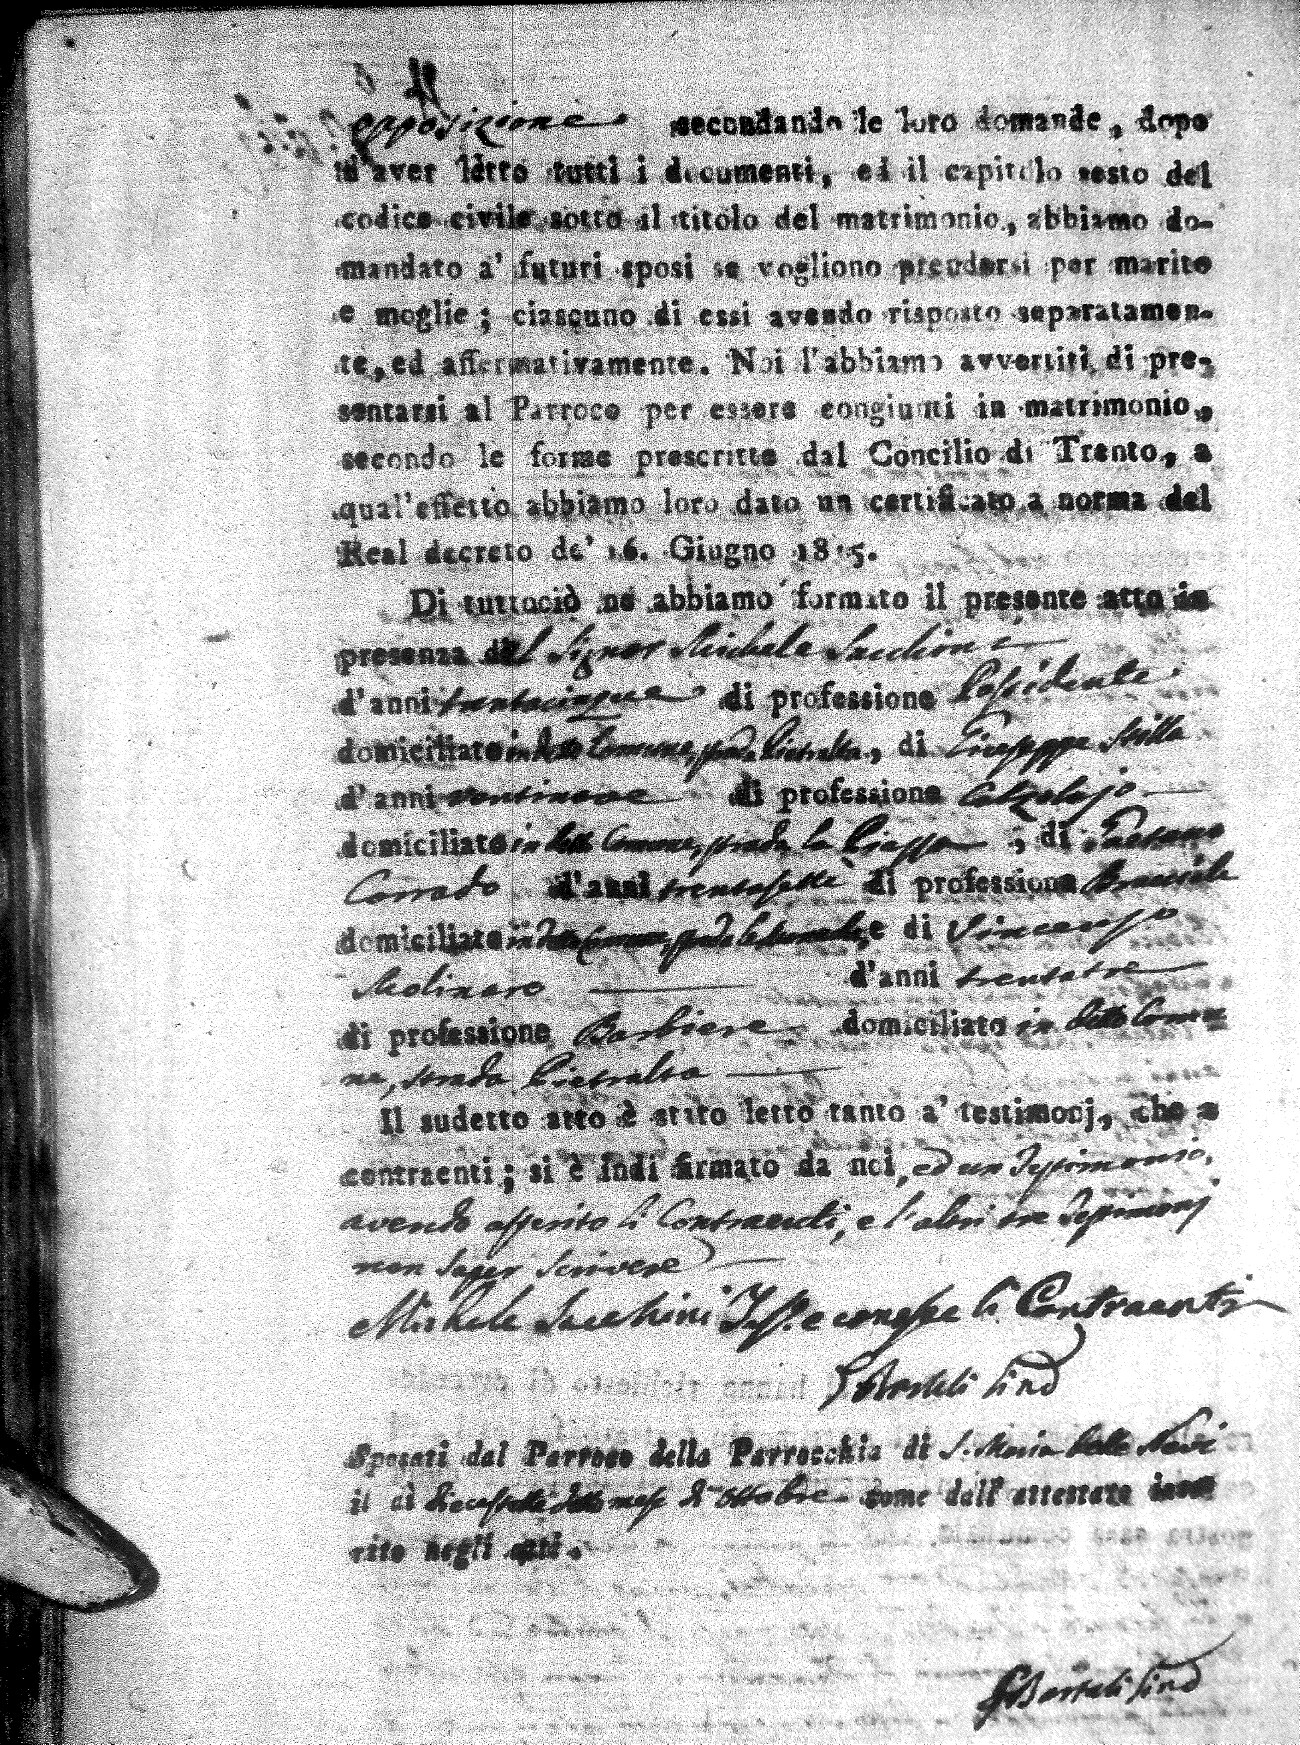 opposizione secondando le loro domande, dopo
d'aver letto tutti i documenti, ed il capitolo sesto del
codice civile sotto il titolo del matrimonio, abbiamo do-
mandato a' futuri sposi se vogliono prendersi per marito
e moglie; ciascuno di essi avendo risposto separatamen-
te, ed affermativamente. Noi l'abbiamo avvertiti di pre-
sentarsi al Parroco per essere congiunti in matrimonio,
secondo le forme prescritte dal Concilio di Trento, a
qual'effetto abbiamo loro dato un certificato a norma del
Real decreto de' 16. Giugno 1815.
Di tuttociò ne abbiamo formato il presente atto in
presenza del Signor Michele Sacchini
d'anni trentacinque di professione Possidente
domiciliato in detto Comune, strada Pietralta, di Giuseppe Stilla
d'anni ventinove di professione Calzolajo
domiciliato in detto Comune, strada la Piazza, di Gaetano
Corrado d'anni trentasette di professione Bracciale
domiciliato in detto Comune, strada e di Vincenzo
Molinaro d'anni trentatre
di professione Barbiere domiciliato in detto Comu
ne, strada Pietralta
Il sudetto atto è stato letto tanto a' testimonj, che a
contraenti; si è indi firmato da noi, ed un Testimonio,
avendo asserito li Contraenti, e l'altri tre Testimonj
non saper scrivere
Michele Sacchini Test. e conosce li Contraenti
Bortoli Sind
Sposati dal Parroco della Parrocchia di S. Maria delle Nevi
il dì diecessette detto mese di Ottobre come dall' attestato inse
rito negli atti.
Bortoli Sind